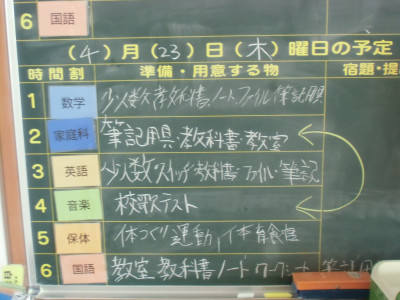 6 国語
(4)月(23)日(木)曜日の予定
時間割 準備・用意する物 宿題・提
1 数学 少人数 教科書、ノート、ファイル 筆記用具
2 家庭科 筆記用具・教科書・教室
3 英語 少人数 教科書・ファイル・筆記
4 音楽 校歌テスト
5 保体 体つくり運動, 体育館
6 国語 教室 教科書 ノート ワーク 筆記用